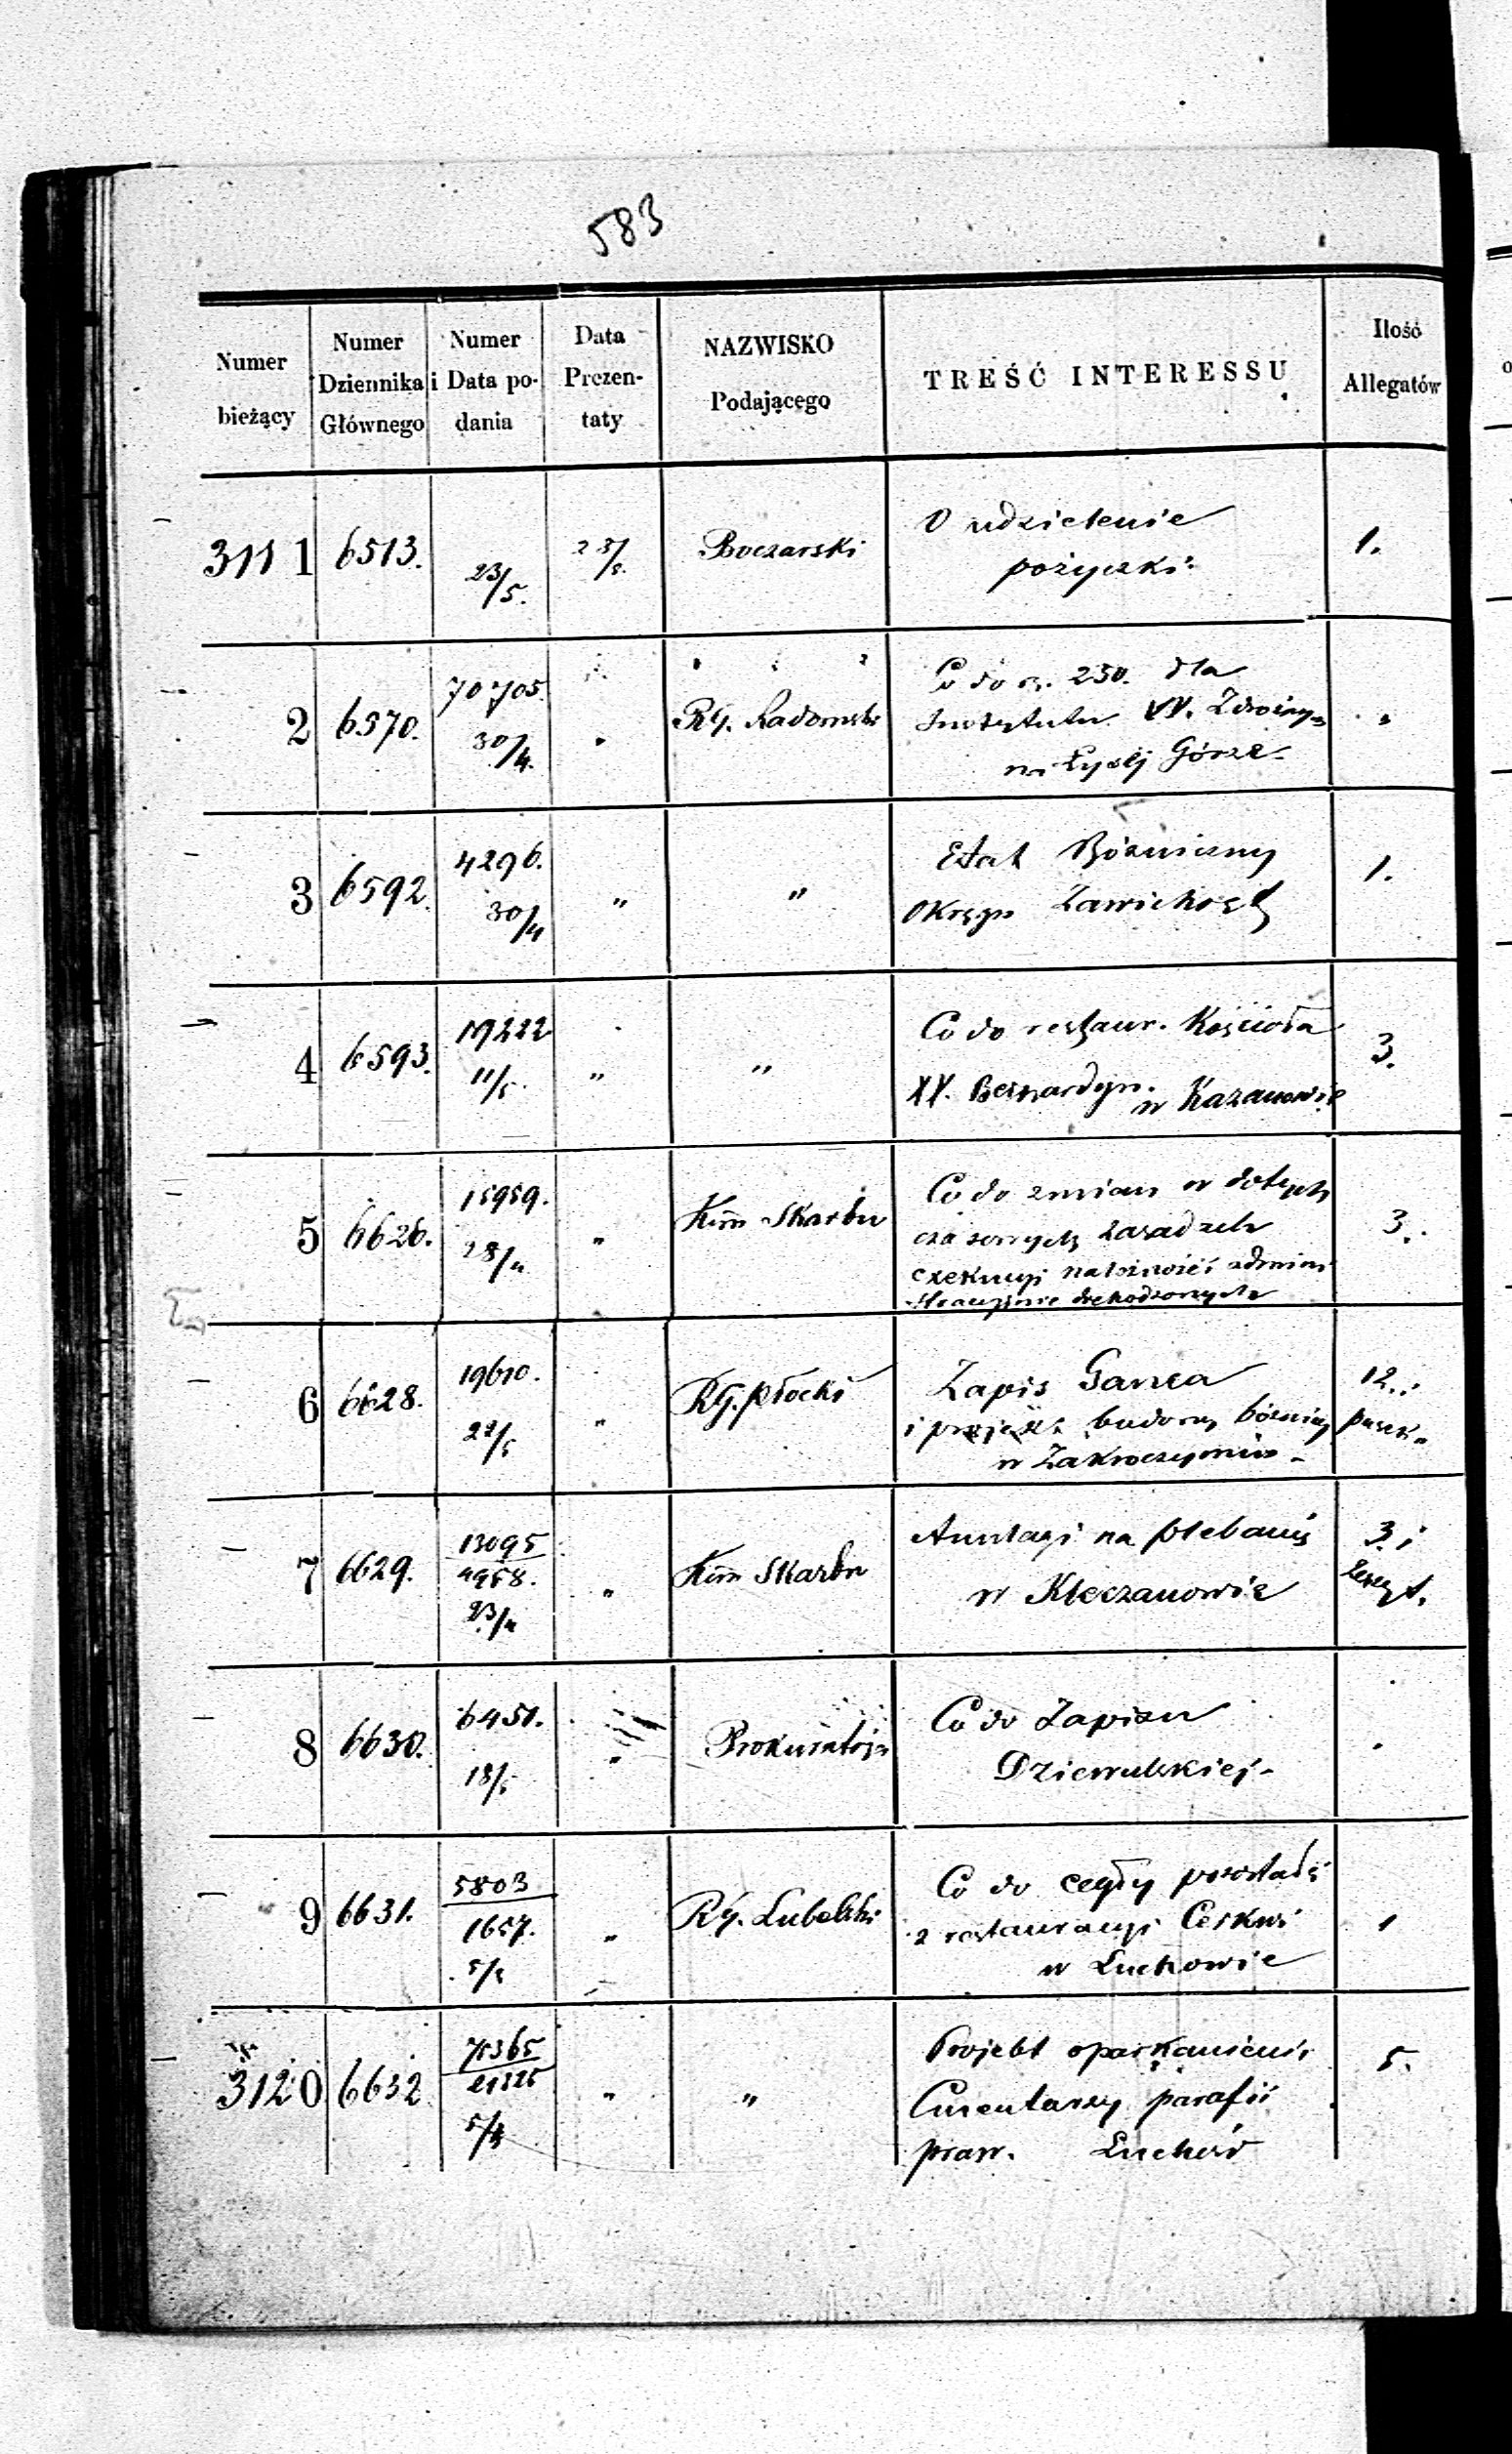 583
Numer bieżący | Numer Dziennika Głównego | Numer i Data podania | Data Prezentaty | NAZWISKO Podającego | TREŚĆ INTERESSU | Ilość Allegatów
3111 | 6513. | 23/5. | 23/5. | Boczarski | O udzielenie
pożyczki | 1.
2 | 6570. | 70705. 30/4. | " | RG. Radomski | Co do rs. 250. dla
Instytutu XX. Zdrożnych
na Łysej Górze | "
3 | 6592. | 4296. 30/4 | " | " | Etat Bóżniczny
Okręgu Zawichost | 1.
4 | 6593. | 19222 11/5. | " | " | Co do restaur. Kościoła
XX. Bernardyn. w Kazanowie | 3.
5 | 6626. | 15959. 28/4 | " | Kom Skarbu | Co do zmian w dotych
czasowych zasadach
exekucyi należności admini
stracyjnie dochodzonych | 3.
6 | 6628. | 19610. 22/5 | " | RG. Płocki | Zapis Ganca
i projekt budowy bóżnicy
w Zakroczymiu | 12.
7 | 6629. | 13095
4958. 23/4 | " | Kom Skarbu | na plebanią
w Kleczanowie | 3 i
8 | 6630. | 6451. 18/5 | " | Prokuratorja | Co do Zapisu
Dziewulskiej
9 | 6631. | 5803
1657. 5/5 | " | RG. Lubelski | Co do cegły pozostałej
z restauracyi Cerkwi
w Łuchowie | 1
3120 | 6632 | 75365
21325 | " | " | Projekt oparkanienia
Cmentarzy parafii
praw. Łuchów | 5.